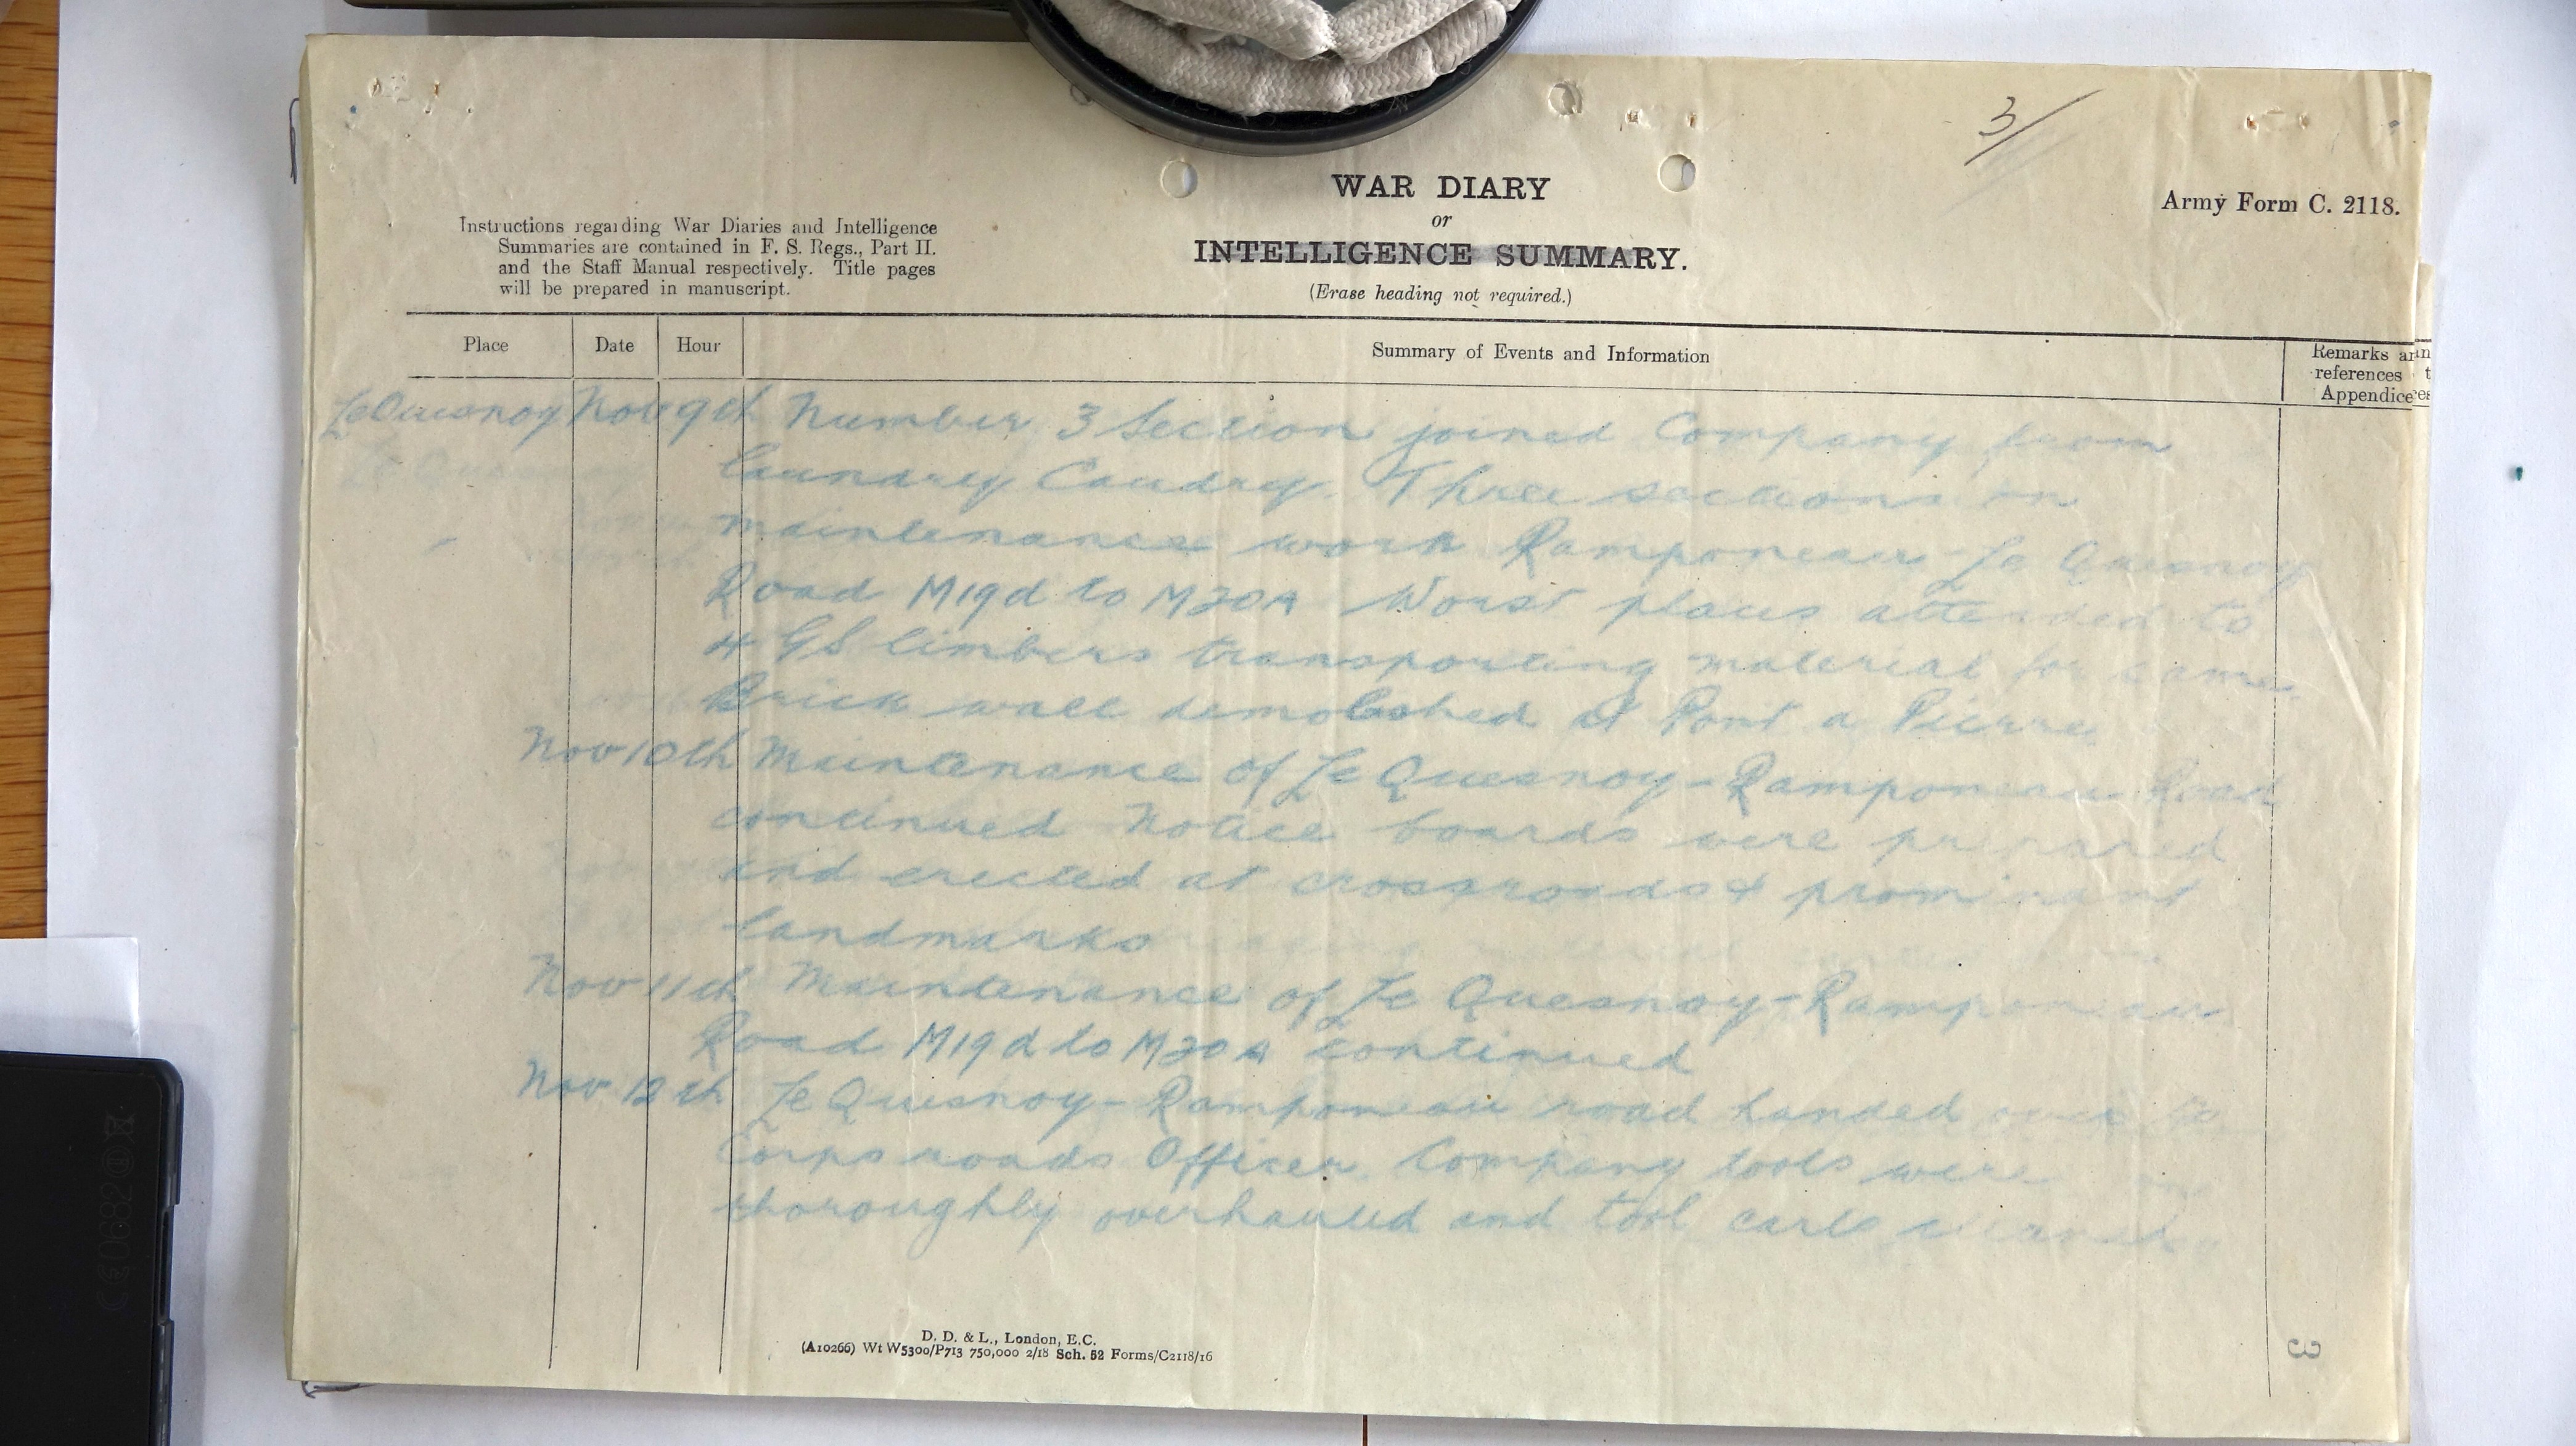 3/
WAR DIARY
or
INTELLIGENCE SUMMARY.
(Erase heading not required.)
Army Form C. 2118.
Instructions regarding War Diaries and Intelligence
Summaries are contained in F. S. Regs., Part II.
and the Staff Manual respectively. Title pages
will be prepared in manuscript.
Place Date Hour Summary of Events and Information Remarks and
references t
Appendices
Le Quesnoy Nov 9th Number 3 Section joined Company from
laundry Caudry. Three sections on
maintenance work Ramponeau-Le Quesnoy
Road M19d to M20A Worst places attended to
4 GS limbers transporting material for same.
Brick wall demolished at Pont a Pierre
Nov 10th Maintenance of Le Quesnoy-Ramponeau Road
continued Notice boards were prepared
and erected at crossroads & prominant
landmarks
Nov 11th Maintenance of Le Quesnoy-Ramponeau
Road M19d to M20A continued
Nov 12th Le Quesnoy-Ramponeau road handed over to
Corps roads Officer. Company tools were
thoroughly overhauled and tool carts cleaned.
D. D. & L., London, E.C.
(A10266) Wt W5300/P713 750,000 2/18 Sch. 52 Forms/C2118/16
3
CE0682